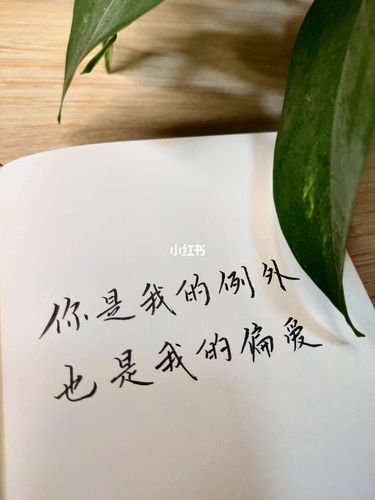 小红书
你是我的例外
也是我的偏爱